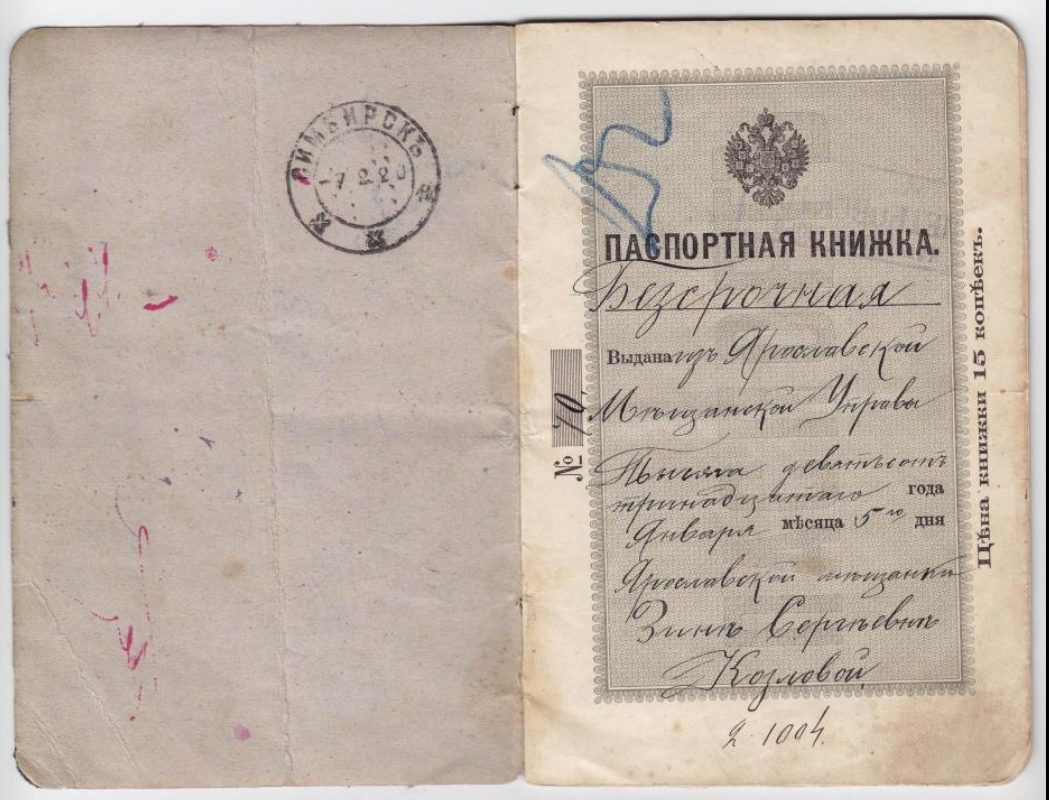 СИМБИРСКЪ
7 2 20
ПАСПОРТНАЯ КНИЖКА.
Безсрочная
Выдана изъ Ярославской
Мѣщанской Управы
№ 70
Тысяча девятьсотъ
тринадцатаго года
Января мѣсяца 5го дня
Ярославской мѣщанки
Зинѣ Сергѣевнѣ
Козловой
2. 1004.
Цѣна книжки 15 копѣекъ.